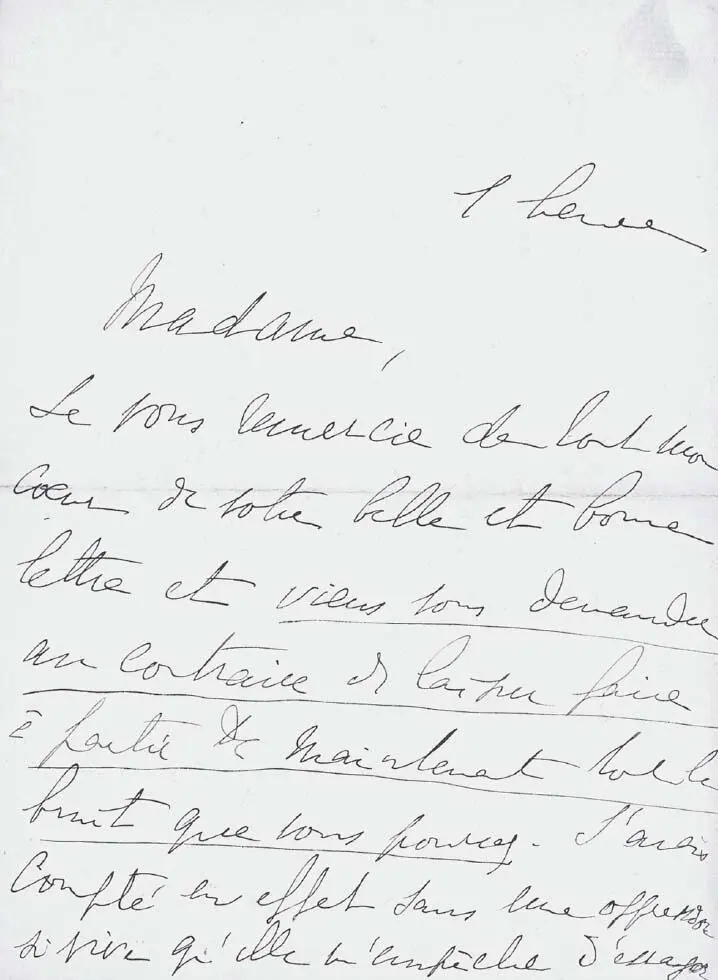 1 heure
Madame,
Je vous remercie de tout mon
cœur de votre belle et bonne
lettre et viens vous demander
au contraire de laisser faire
à partir de maintenant tout le
bruit que vous pourrez. J'avais
compté en effet sans une oppression
si vive qu'elle m'empêche d'essayer